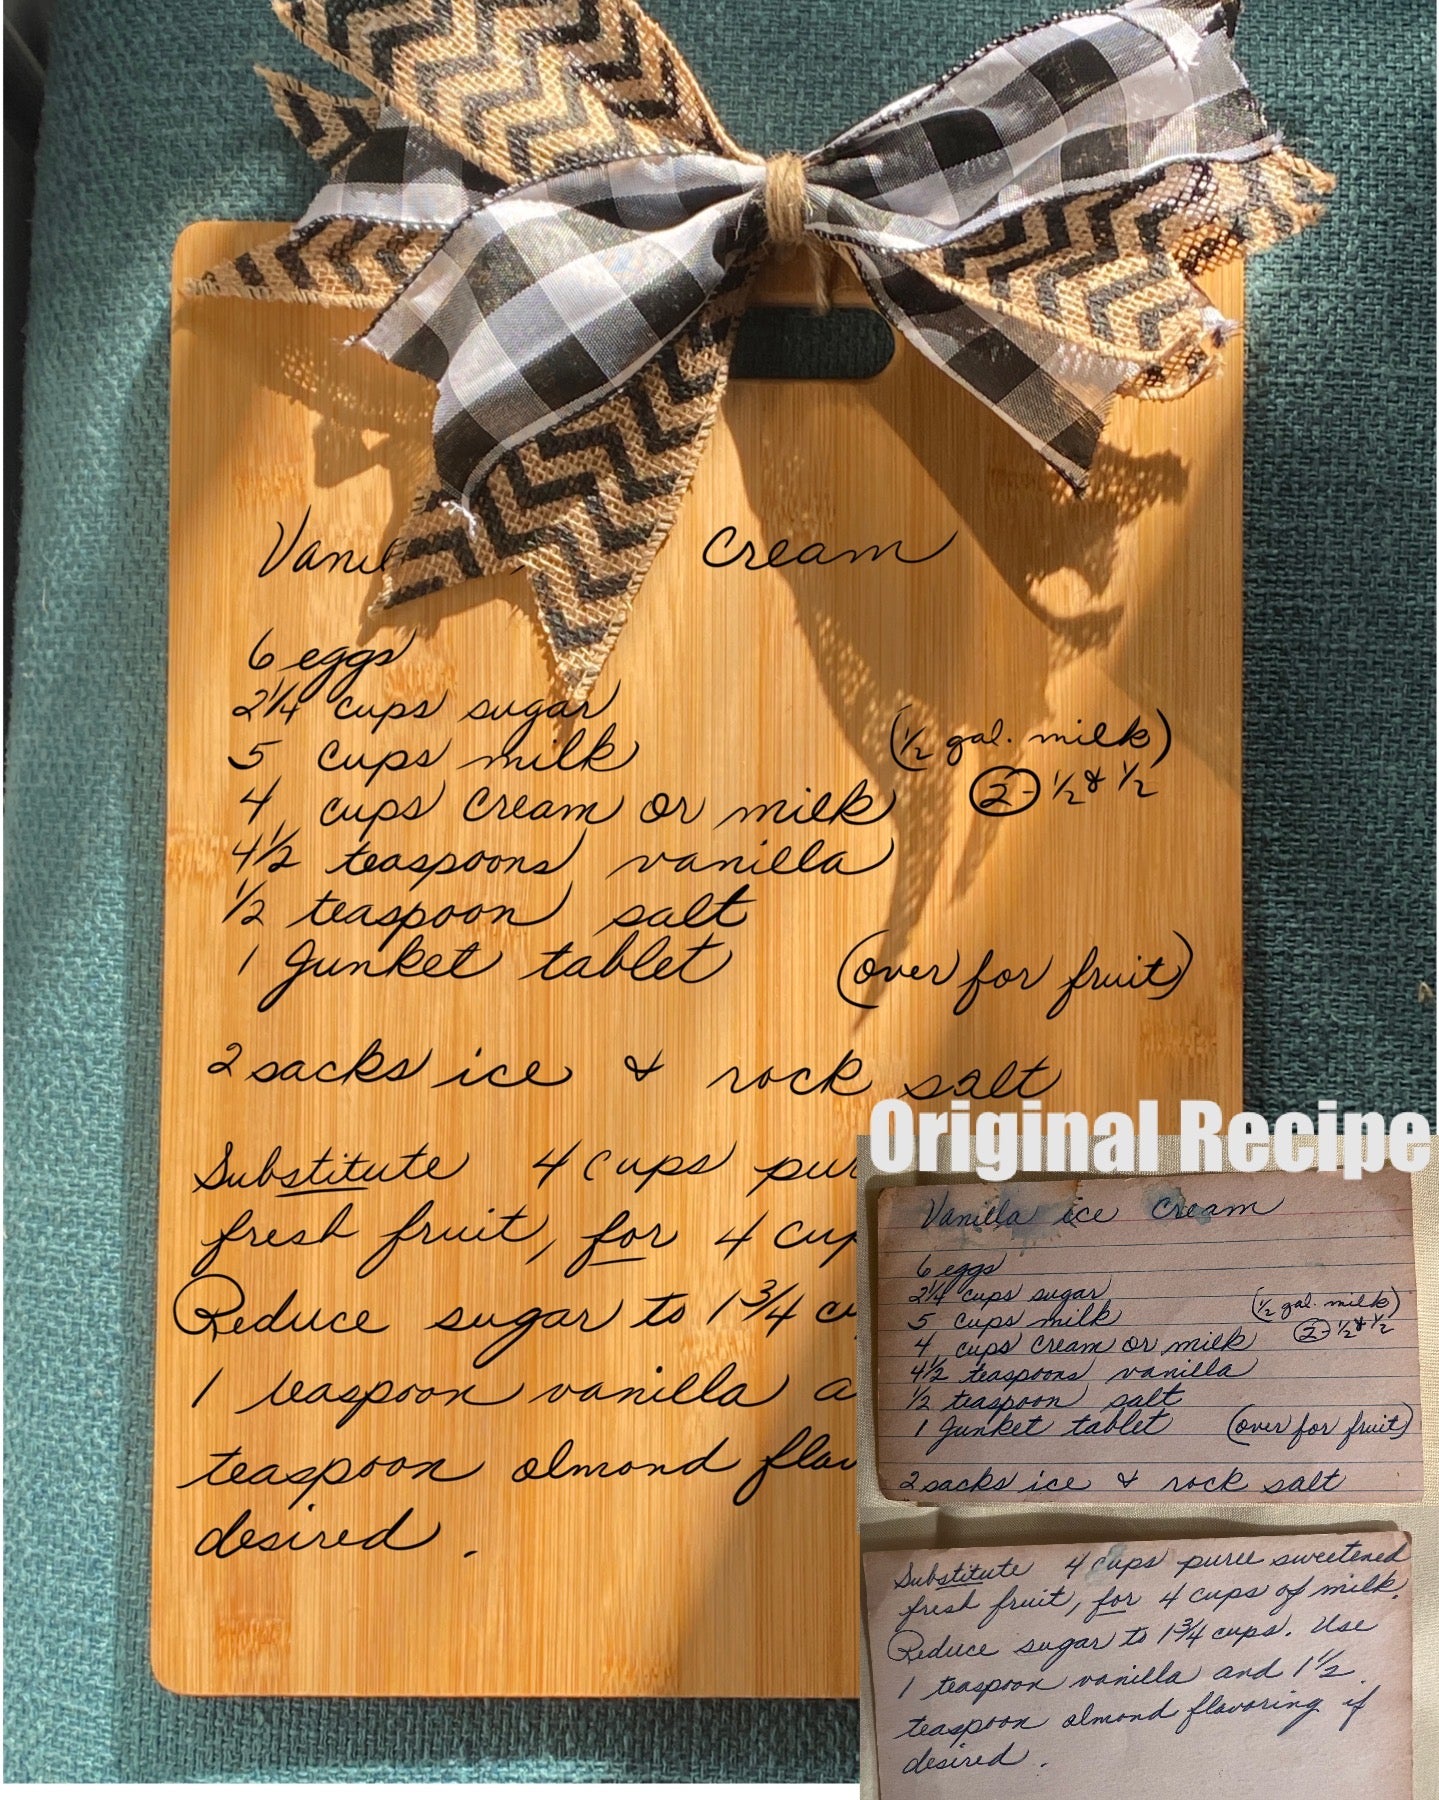 Vani Cream
6 eggs
2 1/4 cups sugar
5 cups milk (1/2 gal. milk)
4 cups cream or milk 2 - 1/2 & 1/2
4 1/2 teaspoons vanilla
1/2 teaspoon salt
1 Junket tablet (over for fruit)
2 sacks ice & rock salt
Substitute 4 cups pur
fresh fruit, for 4 cup
Reduce sugar to 1 3/4 cu
1 teaspoon vanilla a
teaspoon almond flav
desired.
Original Recipe
Vanilla ice cream
6 eggs
2 1/4 cups sugar
5 cups milk (1/2 gal. milk)
4 cups cream or milk 2 - 1/2 & 1/2
4 1/2 teaspoons vanilla
1/2 teaspoon salt
1 Junket tablet (over for fruit)
2 sacks ice & rock salt
Substitute 4 cups puree sweetened
fresh fruit, for 4 cups of milk.
Reduce sugar to 1 3/4 cups. Use
1 teaspoon vanilla and 1 1/2
teaspoon almond flavoring if
desired.